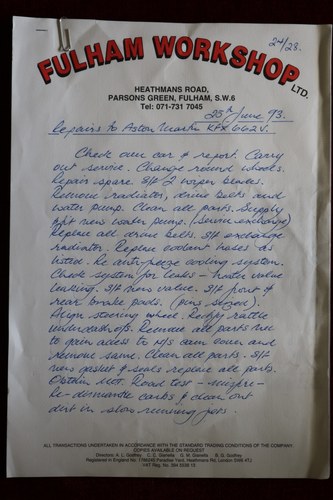 24/28.
FULHAM WORKSHOP LTD.
HEATHMANS ROAD,
PARSONS GREEN, FULHAM, S.W.6
Tel: 071-731 7045
25th June 93.
Repairs to Aston Martin KPX 662V.
Check over car & report. Carry
out service. Change round wheels.
Repair spare. S/f 2 wiper blades.
Remove radiator, drive belts and
water pump. Clean all parts. Supply
& fit new water pump. (Service exchange)
Replace all drive belts. S/f exchange
radiator. Replace coolant hoses as
listed. Re anti-freeze cooling system.
Check system for leaks - heater valve
leaking. S/f new valve. S/f front &
rear brake pads. (pins seized).
Align steering wheel. Rectify rattle
under dash o/s. Remove all parts nec
to gain access to n/s cam cover and
remove same. Clean all parts. S/f
new gasket & seals replace all parts.
Obtain MOT. Road test - misfire -
Re-dismantle carbs & clean out
dirt in slow running jets.
ALL TRANSACTIONS UNDERTAKEN IN ACCORDANCE WITH THE STANDARD TRADING CONDITIONS OF THE COMPANY.
COPIES AVAILABLE ON REQUEST